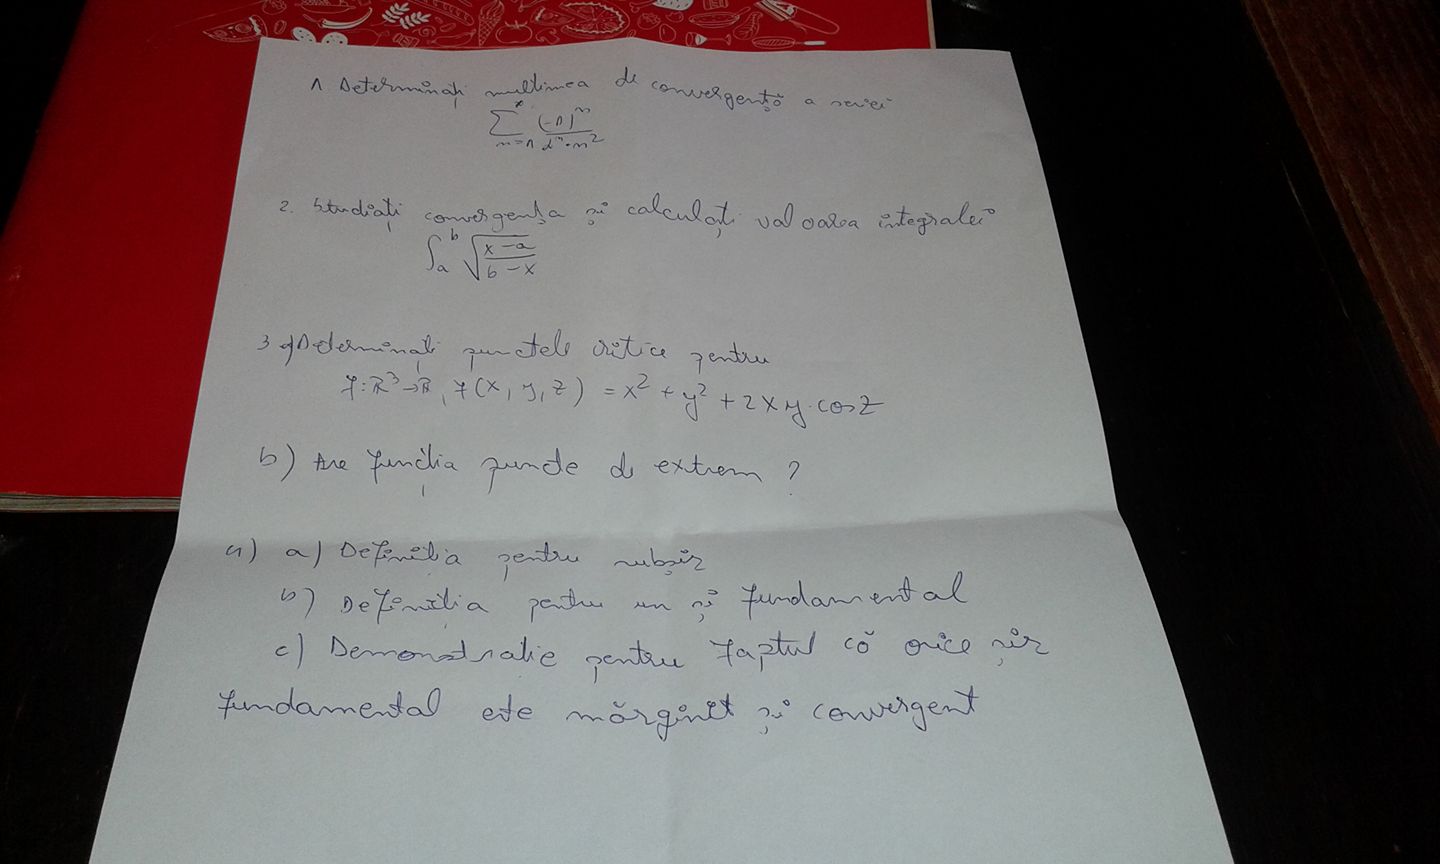 1 Determinați mulțimea de convergență a seriei
∑ n=1 ∞ (-1)^n / d^n · n^2
2. Studiați convergența și calculați valoarea integralei
∫_a^b √((x-a)/(b-x))
3 a) Determinați punctele critice pentru
f: R^3→R, f(x, y, z) = x^2 + y^2 + 2xy·cosz
b) Are funcția puncte de extrem?
4) a) Definiția pentru subșir
b) Definiția pentru un șir fundamental
c) Demonstratie pentru faptul că orice șir
fundamental este mărginit și convergent